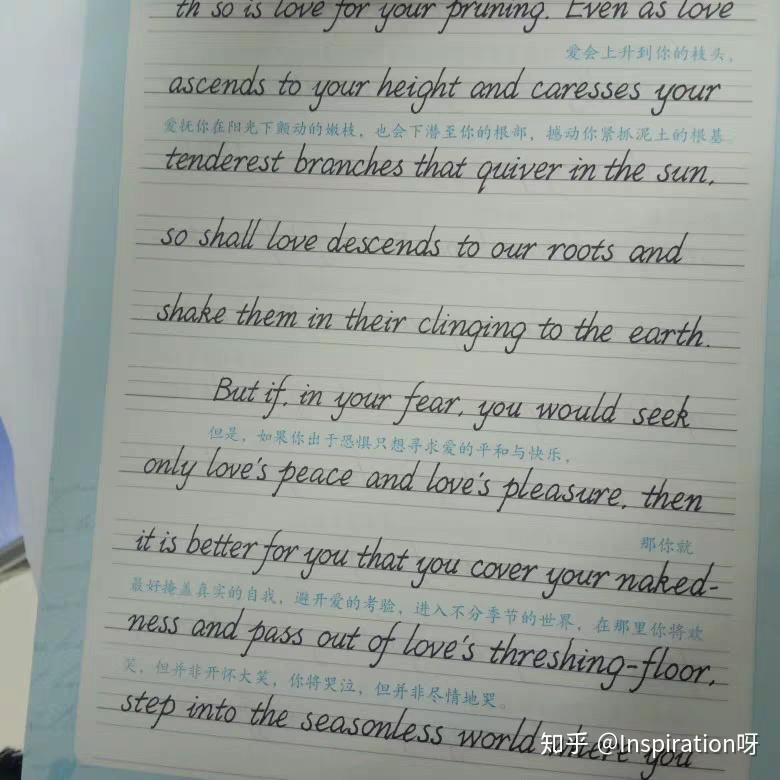 th so is love for your pruning. Even as love
爱会上升到你的枝头，
ascends to your height and caresses your
爱抚你在阳光下颤动的嫩枝，也会下潜至你的根部，撼动你紧抓泥土的根基。
tenderest branches that quiver in the sun,
so shall love descends to our roots and
shake them in their clinging to the earth.
But if, in your fear, you would seek
但是，如果你出于恐惧只想寻求爱的平和与快乐，
only love's peace and love's pleasure, then
那你就
it is better for you that you cover your naked-
最好掩盖真实的自我，避开爱的考验，进入不分季节的世界，在那里你将欢
ness and pass out of love's threshing-floor,
笑，但并非开怀大笑，你将哭泣，但并非尽情地哭。
step into the seasonless world where you
知乎 @Inspiration呀